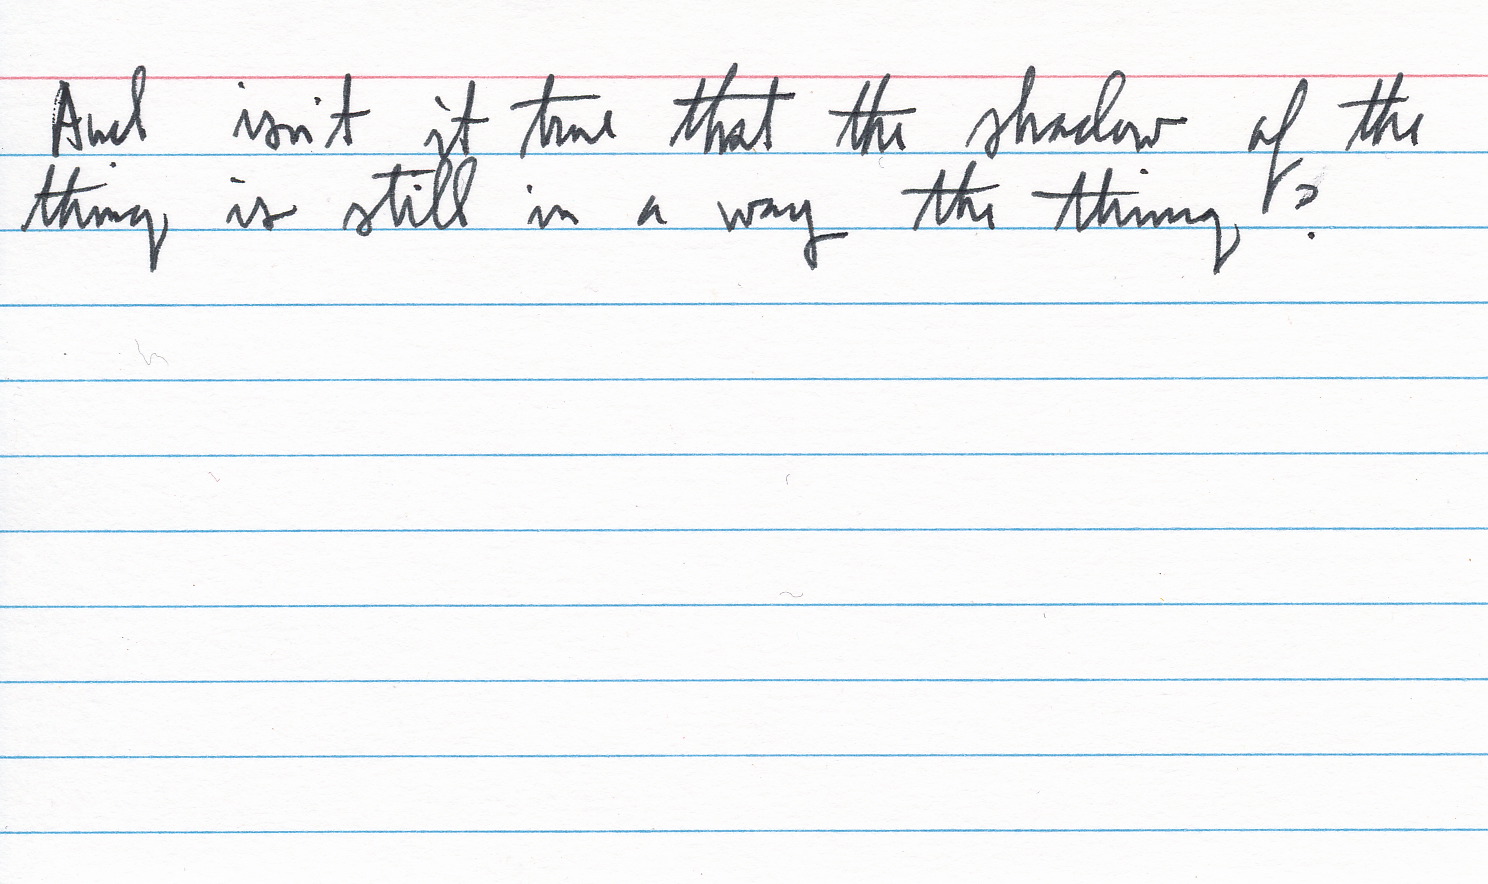 And isn't it true that the shadow of the
thing is still in a way the thing?